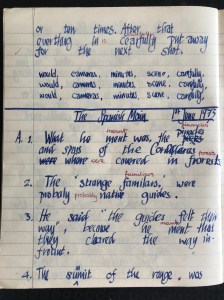 or ten times. After that
everything is carefully put away
for the next shot.
would, cameras, minutes, scene, carefully,
would, cameras, minutes, scene, carefully,
would, cameras, minutes, scene, carefully.
The Spanish Main 1st June 1975
A. 1. What he meant was, the
and spys of the
were where were covered in forests
2. The "strange familiars," were
probaly probably natives guides.
3. He said "the guides felt their
way", because he meant that
they cleared the way in-
front.
4. The sumit of the range was